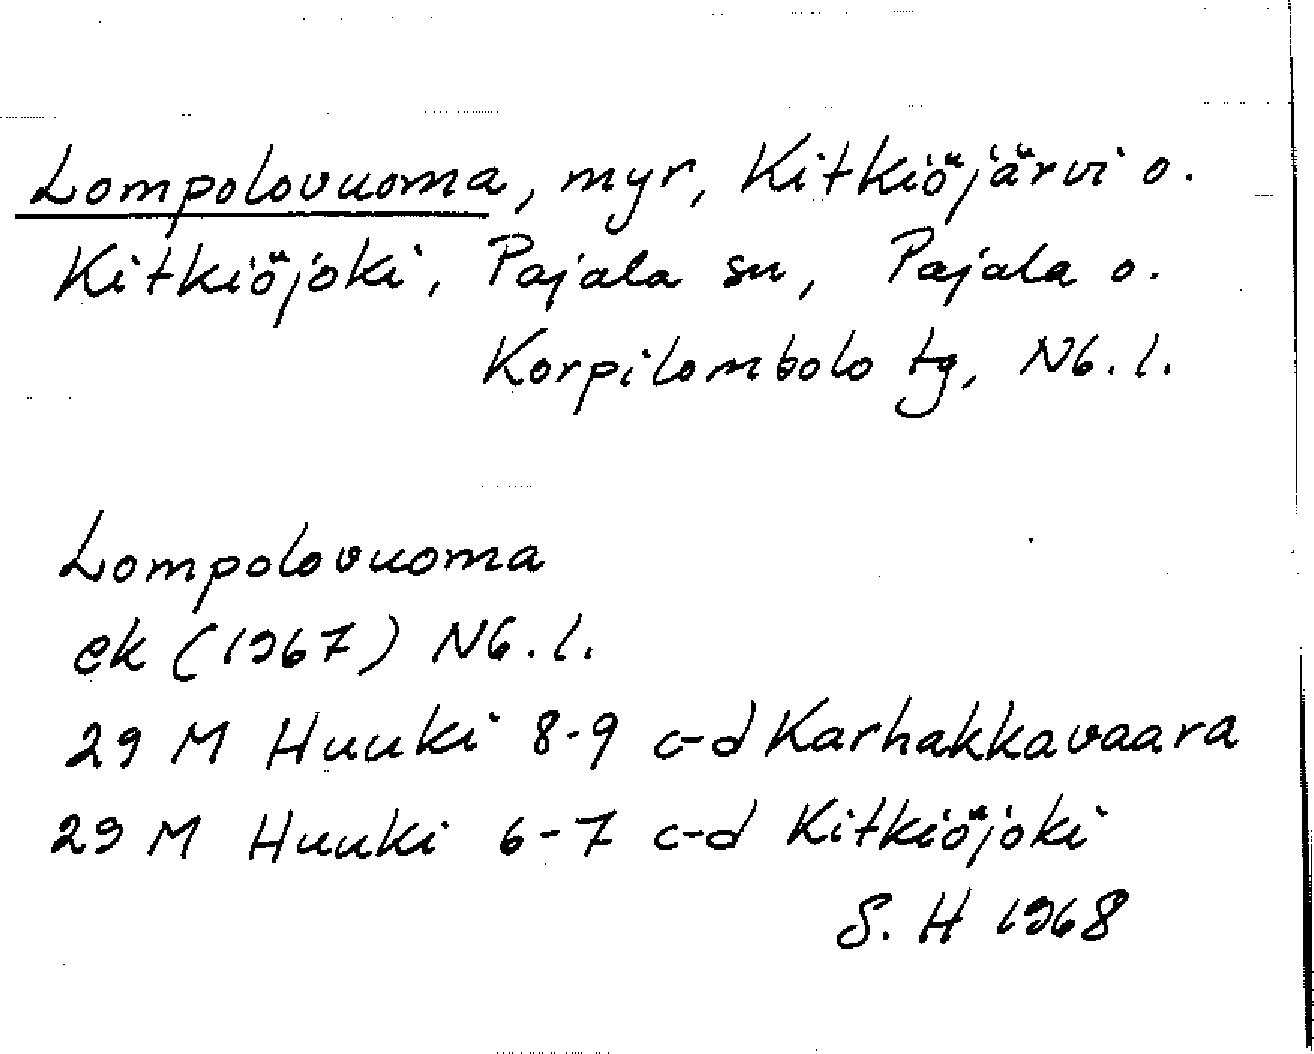 Lompolovuoma, myr, Kitkiöjärvi o.
Kitkiöjoki, Pajala sn, Pajala o.
Korpilombolo tg, Nb. l.
Lompolovuoma
ek (1967) Nb. l.
29 M Huuki 8-9 c-d Karhakkavaara
29 M Huuki 6-7 c-d Kitkiöjoki
S. H 1968